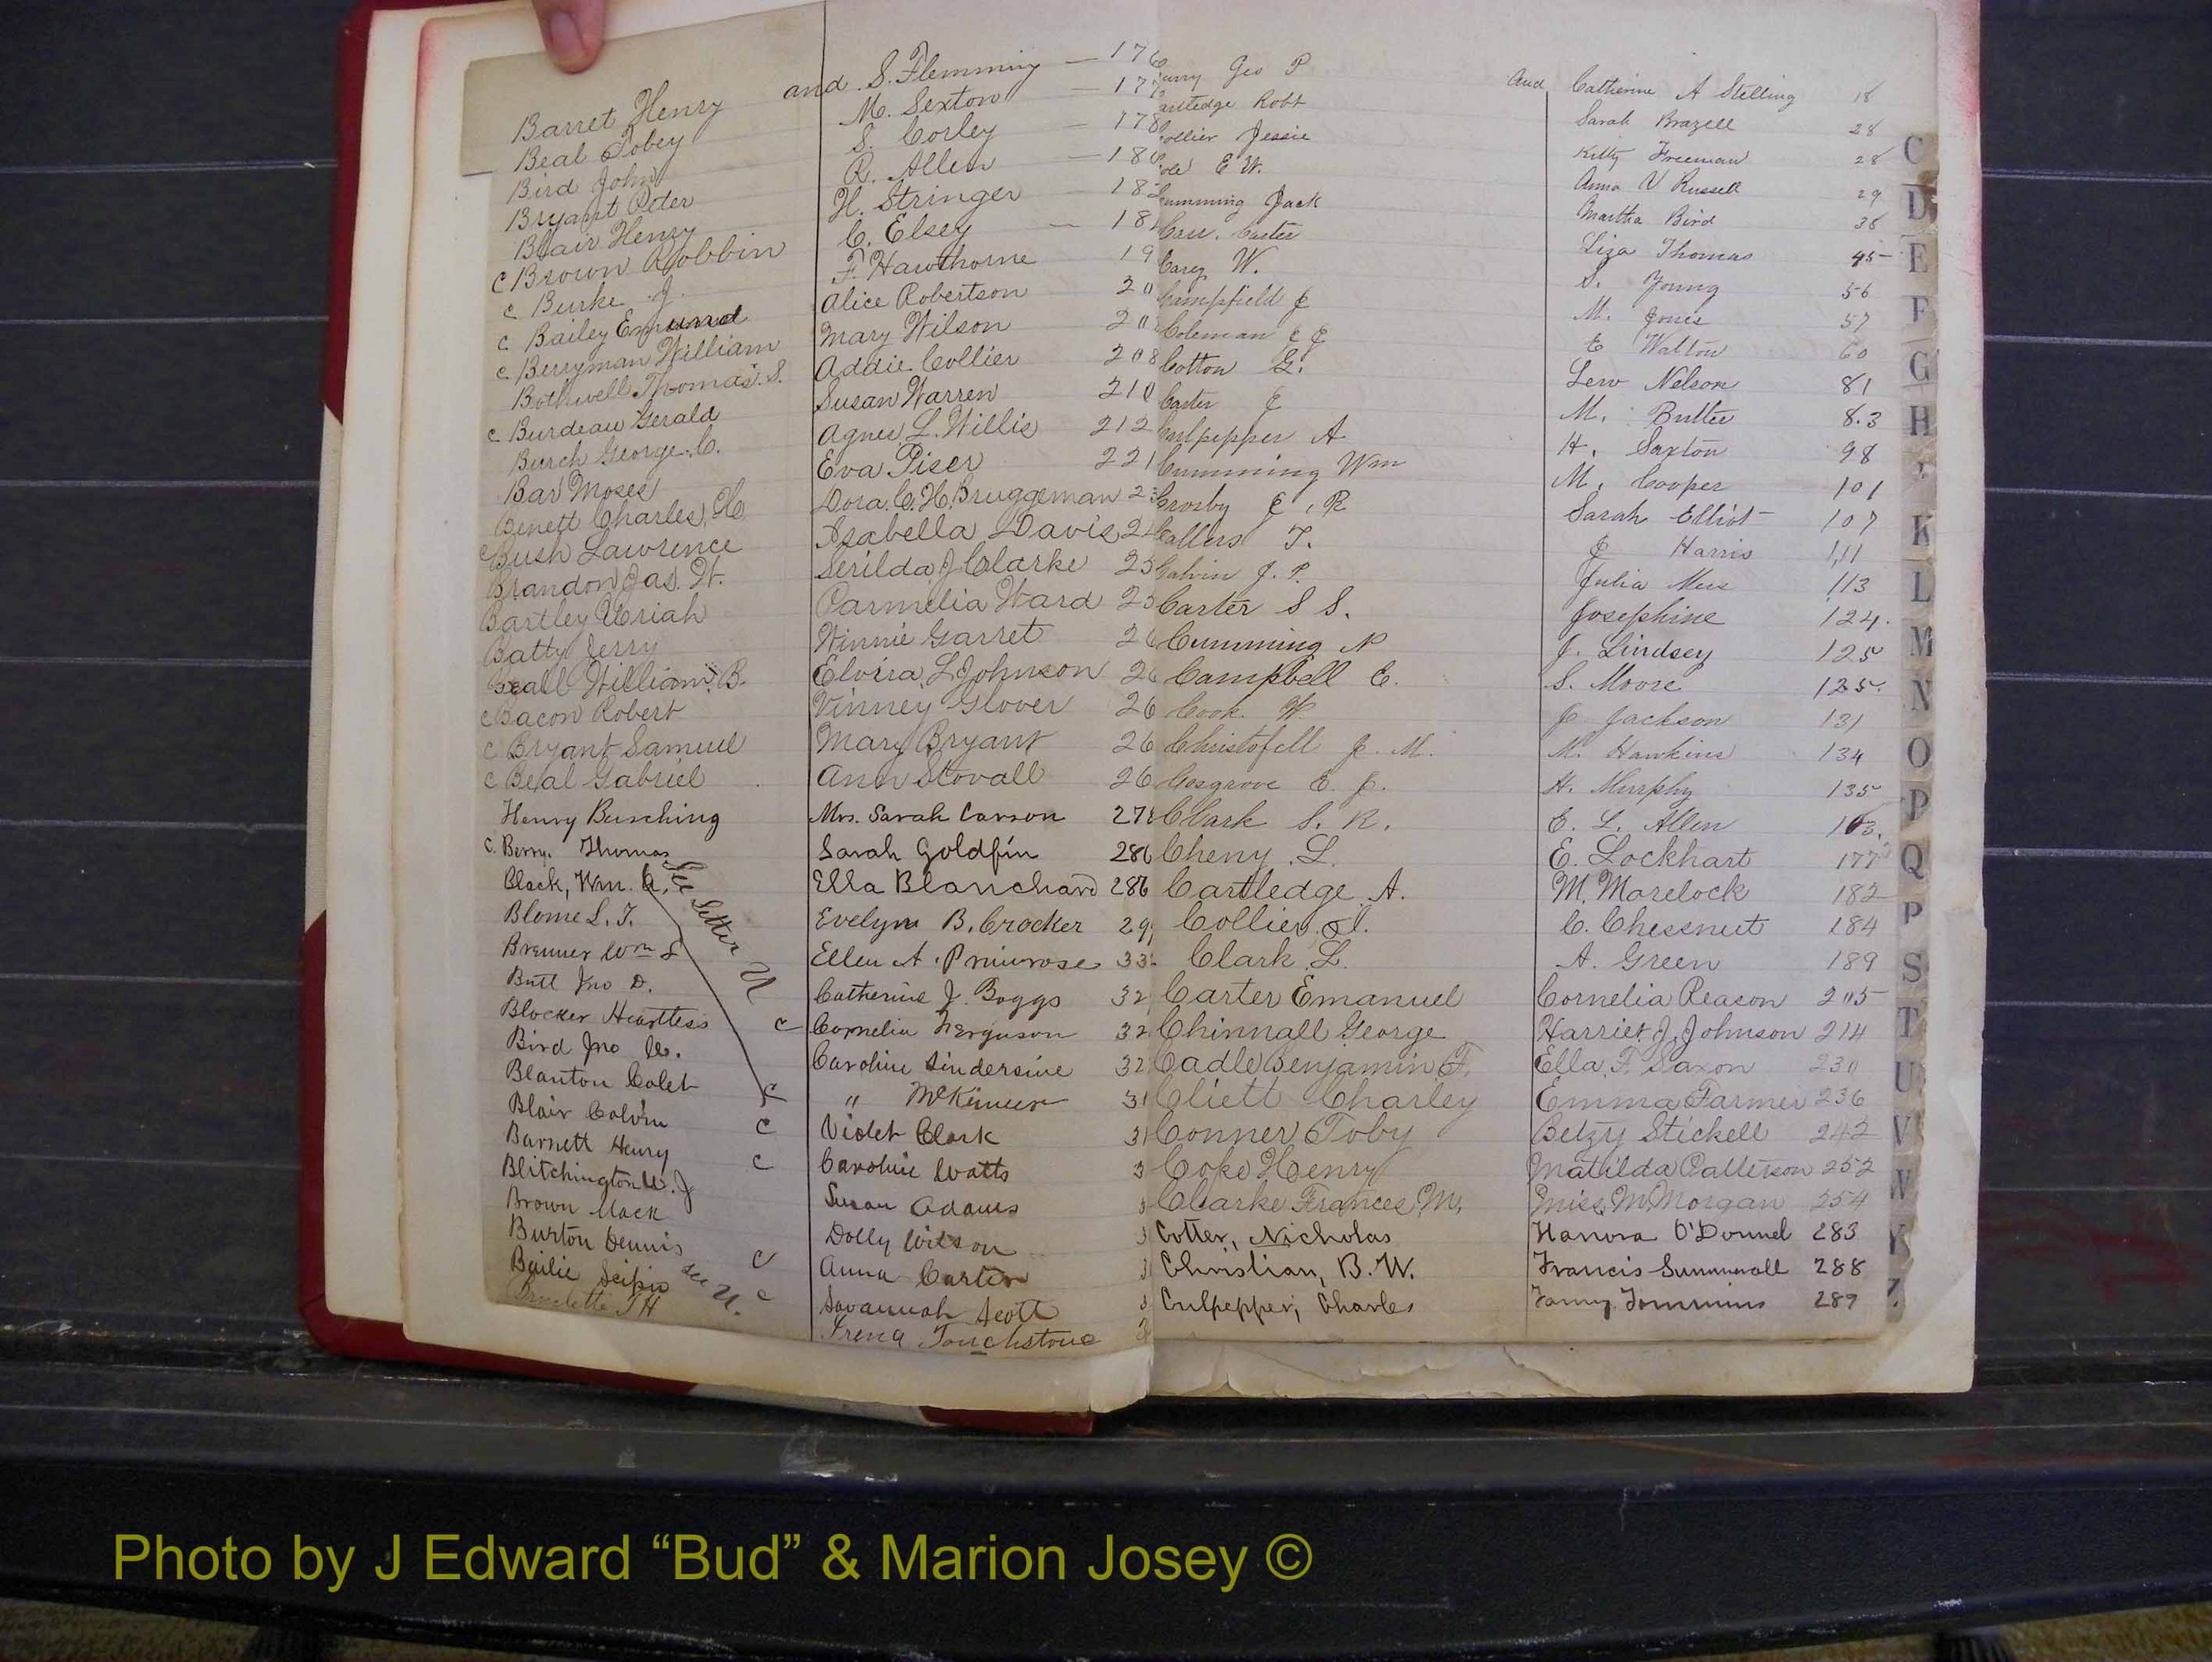 Barret Henry and S. Flemming — 176
Beal Tobey M. Sexton — 177
Bird John S. Corley — 178
Bryant Peter R. Allen — 18
Blair Henry H. Stringer — 18
C Brown Robbin C. Elsey — 18
c Burke J. F. Hawthorne 19
c Bailey Emund Alice Robertson 20
c Berryman William Mary Wilson 20
Bothwell Thomas. S. Addie Collier 208
c Burdeau Gerald Susan Warren 210
Burch George. C. Agnes L. Willis 212
Bar Moses Eva Piser 221
Benett Charles, H. Dora. C. H. Bruggeman 2
c Bush Lawrence Isabella Davis 2
Brandon Jas. W. Serilda J Clarke 25
Bartley Uriah Parmelia Ward 25
Batty Jerry Winnie Garret 26
Beall William. B. Elvira L Johnson 26
c Bacon Robert Vinney Glover 26
c Bryant Samuel Mary Bryant 26
c Beal Gabriel Ann Stovall 26
Henry Busching Mrs. Sarah Carson 278
C. Berry. Thomas Sarah Goldfin 286
Black, Wm. Ella Blanchard 286
Blome L. T. Evelyn B. Crocker 29
Brenner Wm S Ellen A. Primrose 33
Butt Jno D. Catherine J. Boggs 32
Blocker Heartless c Cornelia Ferguson 32
Bird Jno Caroline Sindersine 32
Blanton Caleb c " McKinnon 31
Blair Calvin c Violet Clark 31
Barnett Henry c Caroline Watts 3
Blitchington W. J Susan Adams 3
Brown Mack Dolly Wilson 3
Burton Dennis c Anna Carter 3
Bailie Scipio c Savannah Scott 3
T H Irena Touchstone
See Letter U
see U.
urry Geo P And Catherine A Stelling 18
artledge Robt Sarah Brazell 28
ollier Jessie Kitty Freeman 28
ole E W. Anna V Russell 29
umming Jack Martha Bird 38
Carr. Carter Liza Thomas 45
Carey W. S. Young 56
Campfield J M. Jones 57
Coleman J J E Walton 60
Cotton G. Lew Nelson 81
Carter J M. Butler 83
ulpepper A H. Saxton 98
Cumming Wm M. Cooper 101
Crosby J, R Sarah Elliot 107
Callers T. J Harris 111
Galvin J. P. Julia 113
Carter S S. Josephine 124.
Cumming N J. Lindsey 125
Campbell C. S. Moore 125.
Cook W J Jackson 131
Christofell J. M. M. Hawkins 134
Cosgrove E. J. H. Murphy 135
Clark S. R. C. L. Allen 163.
Cheny. L. E. Lockhart 177
Cartledge. A. M. Morelock 182
Collier. J. C. Chessnut 184
Clark. L. A. Green 189
Carter Emanuel Cornelia Reason 205
Chinnall George Harriet J. Johnson 214
Cadle Benjamin F. Ella. F. Saxon 230
Cliett Charley Emma Farmer 236
Conner Toby Betzy Stickell 242
Coke Henry Matilda Patterson 252
Clarke Frances. M. Miss. M. Morgan 254
Cotter, Nicholas Hanora O'Donnel 283
Christian, B. W. Francis Summerall 288
Culpepper, Charles Fanny Tommins 289
C
D
E
F
G
H
K
L
M
N
O
P
Q
P
S
T
U
V
W
Z
Photo by J Edward “Bud” & Marion Josey ©